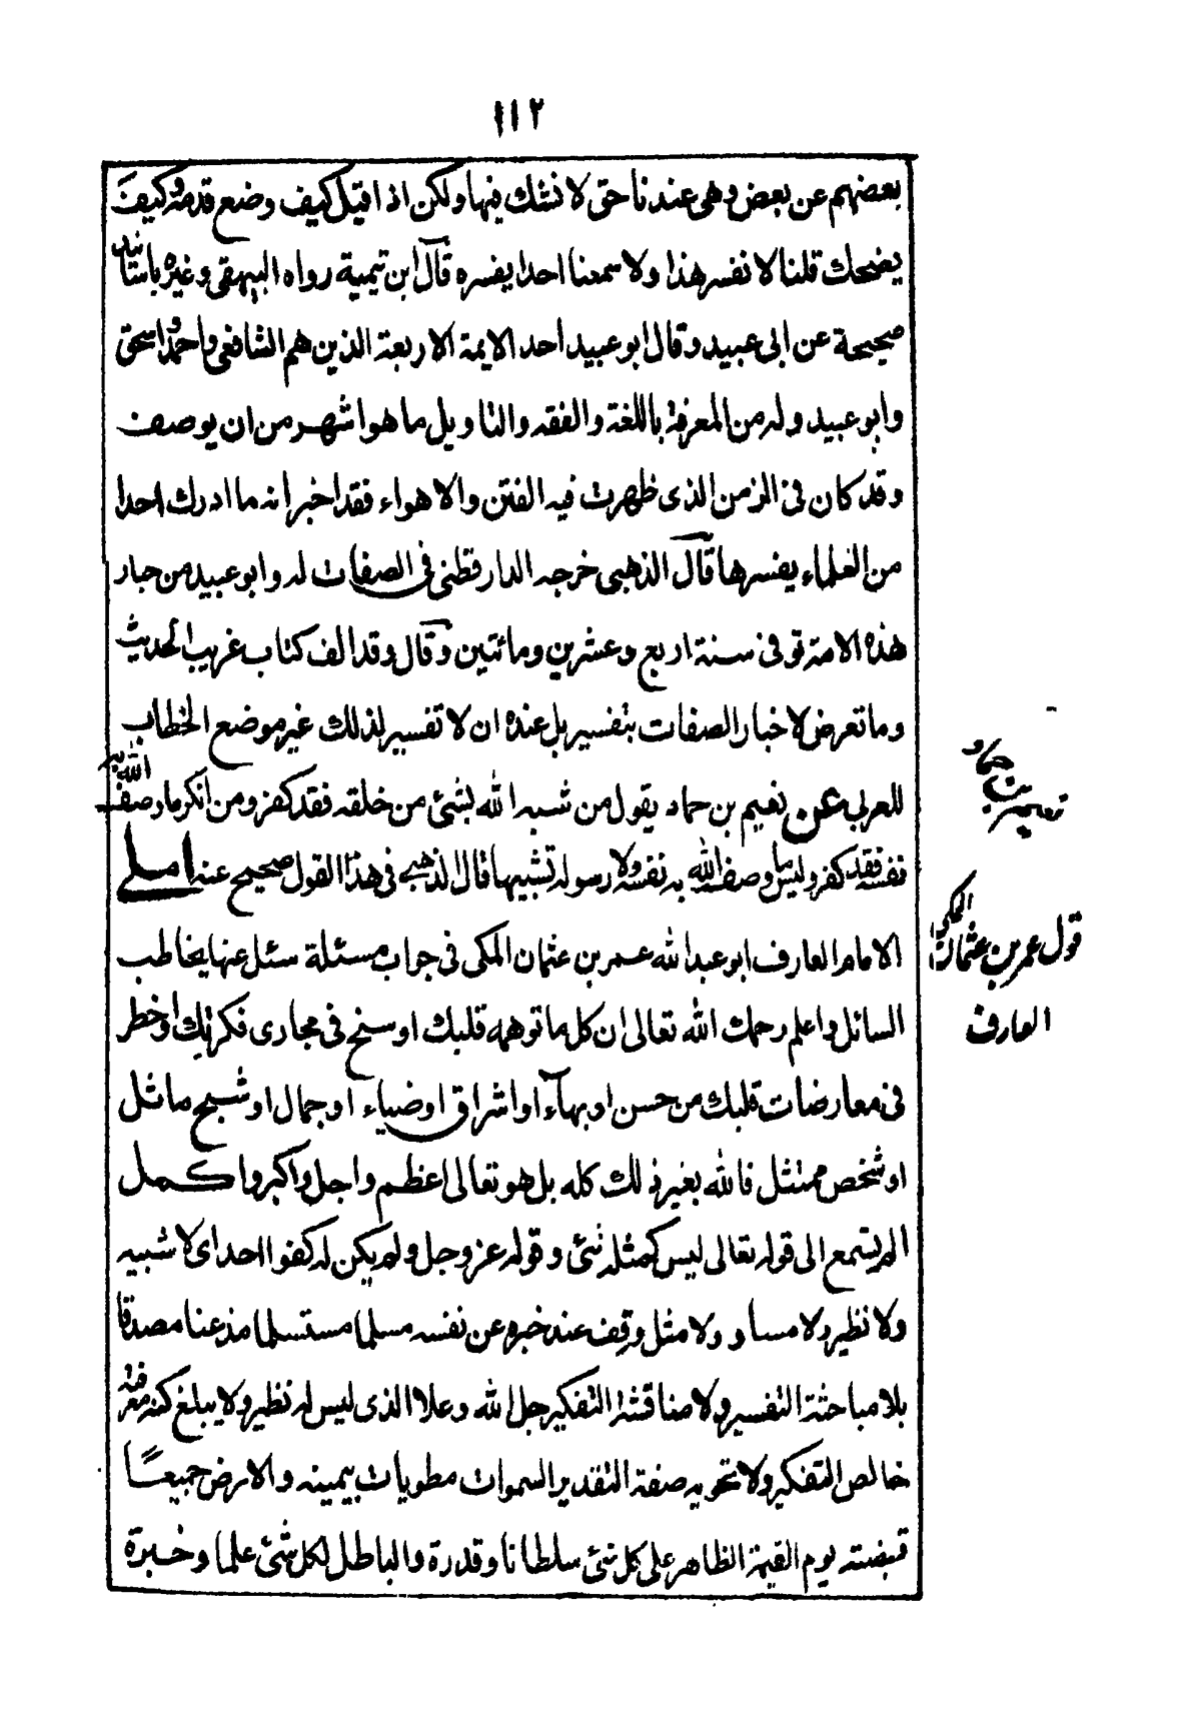 ١١٢
بعضهم عن بعض وهى عندنا حق لا نشك فيها ولكن اذا قيل كيف وضع قدمه وكيف
يضحك قلنا لا نفسر هذا ولا سمعنا احدا يفسره قال ابن تيمية رواه البيهقى وغيره باسانيد
صحيحة عن ابى عبيد وقال ابو عبيد احد الايمة الاربعة الذين هم الشافعى واحمد واسحق
وابو عبيد وله من المعرفة باللغة والفقه والتاويل ما هو اشهر من ان يوصف
وقد كان فى الزمن الذى ظهرت فيه الفتن والاهواء فقد اخبر انه ما ادرك احدا
من العلماء يفسرها قال الذهبى خرجه الدارقطنى فى الصفات له وابو عبيد من حبار
هذه الامة توفى سنة اربع وعشرين ومائتين وقال وقد الف كتاب غريب الحديث
وما تعرض لاخبار الصفات بتفسير بل عنده ان لا تفسير لذلك غير موضع الخطاب
للعربى عن نعيم بن حماد يقول من شبه الله بشئ من خلقه فقد كفر ومن انكر ما وصف الله به
نفسه فقد كفر وليس ما وصف الله به نفسه ولا رسوله تشبيها قال الذهبى فى هذا القول صحيح عنه املى
الامام العارف ابو عبد الله عمر بن عثمان المكى فى جواب مسئلة سئل عنها يخاطب
السائل واعلم رحمك الله تعالى ان كل ما توهمه قلبك او سنح فى مجارى فكرتك او خطر
فى معارضات قلبك من حسن او بهآء او اشراق او ضياء او جمال او شبح ماثل
او شخص ممتثل فالله بغير ذلك كله بل هو تعالى اعظم واجل واكبر واكمل
الم يستمع الى قوله تعالى ليس كمثله شئ وقوله عز وجل ولم يكن له كفوا احد اى لا شبيه
ولا نظير ولا مساو ولا مثل وقف عند خبره عن نفسه مسلما مستسلما مذعنا مصدقا
بلا مباحثة التفسير ولا مناقشة التفكير جل الله وعلا الذى ليس له نظير ولا يبلغ كنه معرفته
خالص التفكير ولا تحويه صفة التقدير السموات مطويات بيمينه والارض جميعًا
قبضته يوم القيمة الظاهر على كل شئ سلطانا وقدرة والباطل لكل شئ علما وخبرة
نعيم بن حماد
قول عمر بن عثمان المكى
العارف